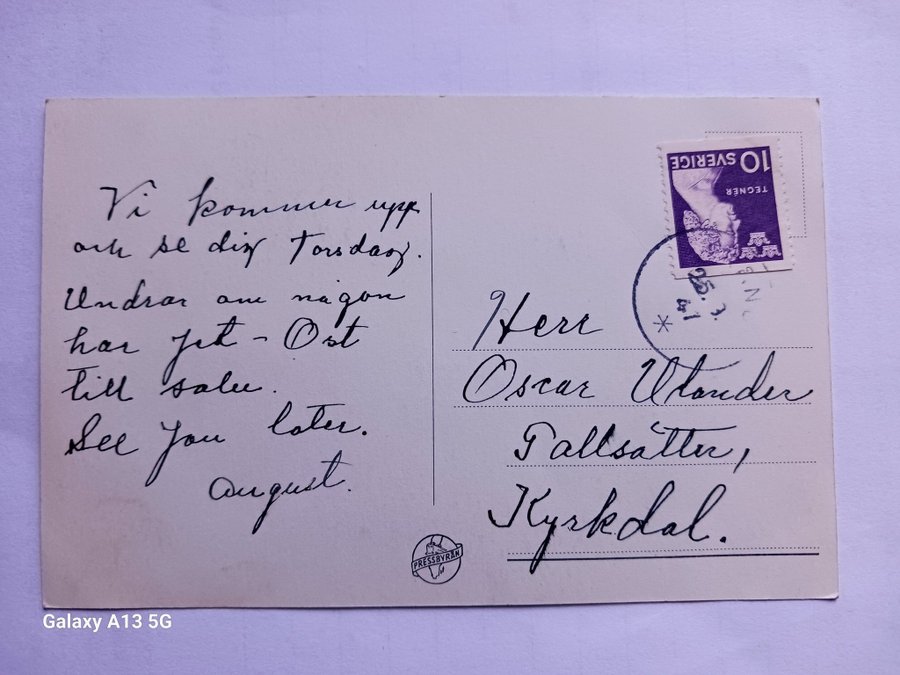 Vi kommer upp
och se dig Torsdag.
Undrar om någon
har Jet-Ost
till salu.
See you later.
August.
10 SVERIGE
TEGNÉR
25. 3.
41
Herr
Oscar Utander
Tallsätter,
Kyrkdal.
PRESSBYRÅN
Galaxy A13 5G